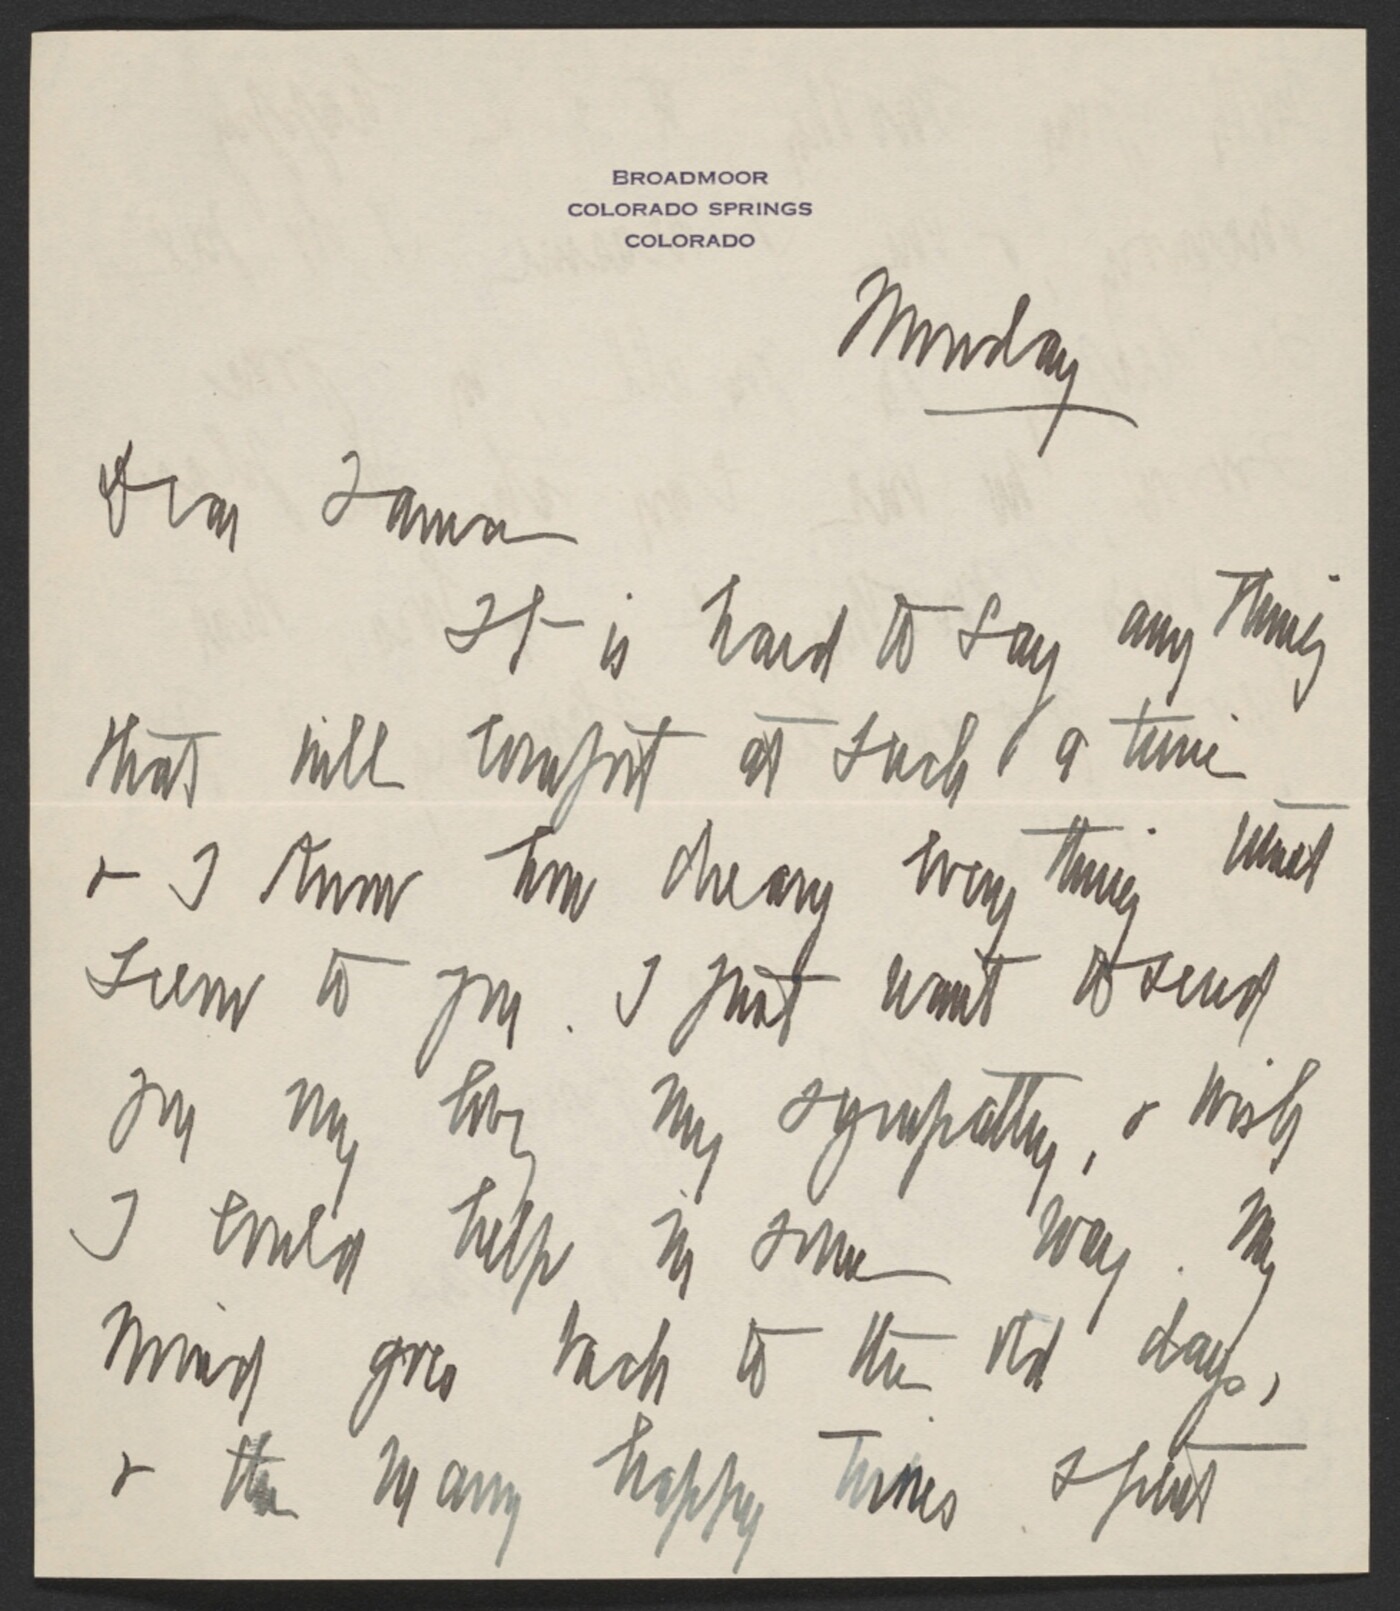 BROADMOOR
COLORADO SPRINGS
COLORADO
Monday
Dear Laura
It is hard to say any thing
that will comfort at such a time
& I know how dreary every thing must
seem to you. I just want to send
you my love my sympathy, & wish
I could help in some way. My
mind goes back to the old days,
& the many happy times spent